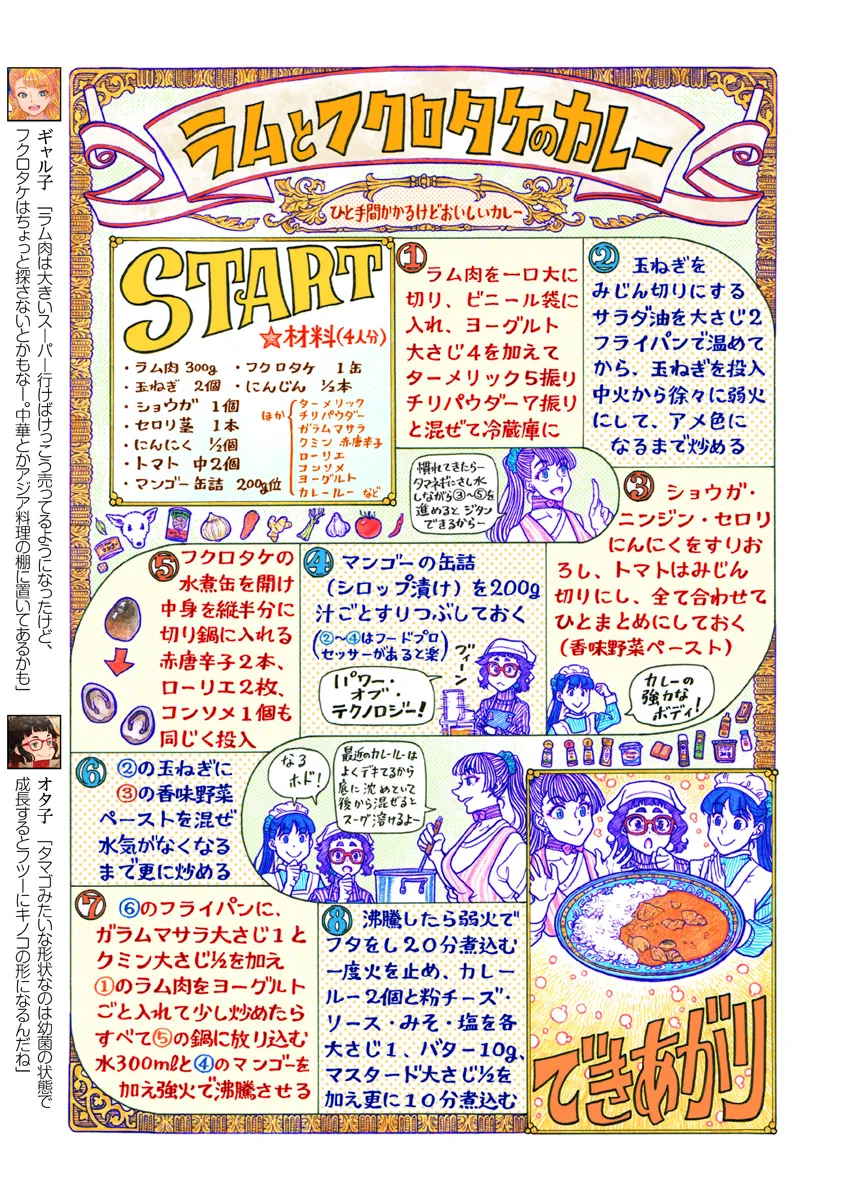 ラムとフクロタケのカレー
ひと手間かかるけどおいしいカレー
START
☆材料(4人分)
・ラム肉 300g ・フクロタケ 1缶
・玉ねぎ 2個 ・にんじん ½本
・ショウガ 1個
・セロリ茎 1本
・にんにく ½個
・トマト 中2個
・マンゴー缶詰 200g位
ほか
ターメリック
チリパウダー
ガラムマサラ
クミン 赤唐辛子
ローリエ
コンソメ
ヨーグルト
カレールー など
①
ラム肉を一口大に
切り、ビニール袋に
入れ、ヨーグルト
大さじ4を加えて
ターメリック5振り
チリパウダー7振り
と混ぜて冷蔵庫に
②
玉ねぎを
みじん切りにする
サラダ油を大さじ2
フライパンで温めて
から、玉ねぎを投入
中火から徐々に弱火
にして、アメ色に
なるまで炒める
慣れてきたらー
タマネギにさし水
しながら③〜⑤を
進めると ジタン
できるからー
③
ショウガ・
ニンジン・セロリ
にんにくをすりお
ろし、トマトはみじん
切りにし、全て合わせて
ひとまとめにしておく
(香味野菜ペースト)
カレーの
強力な
ボディ!
④
マンゴーの缶詰
(シロップ漬け)を200g
汁ごとすりつぶしておく
(②〜④はフードプロ
セッサーがあると楽)
パワー・
オブ・
テクノロジー!
ヴィーン
⑤
フクロタケの
水煮缶を開け
中身を縦半分に
切り鍋に入れる
赤唐辛子2本、
ローリエ2枚、
コンソメ1個も
同じく投入
⑥
②の玉ねぎに
③の香味野菜
ペーストを混ぜ
水気がなくなる
まで更に炒める
なる
ホド!
最近のカレールーは
よくデキてるから
底に沈めといて
後から混ぜると
スーグ溶けるよー
⑦
⑥のフライパンに、
ガラムマサラ大さじ1と
クミン大さじ½を加え
①のラム肉をヨーグルト
ごと入れて少し炒めたら
すべて⑤の鍋に放り込む
水300mlと④のマンゴーを
加え強火で沸騰させる
⑧
沸騰したら弱火で
フタをし20分煮込む
一度火を止め、カレー
ルー2個と粉チーズ・
ソース・みそ・塩を各
大さじ1、バター10g、
マスタード大さじ½を
加え更に10分煮込む
できあがり
ギャル子「ラム肉は大きいスーパー行けばけっこう売ってるようになったけど、
フクロタケはちょっと探さないとかもなー。中華とかアジア料理の棚に置いてあるかも」
オタ子「タマゴみたいな形状なのは幼菌の状態で
成長するとフツーにキノコの形になるんだね」